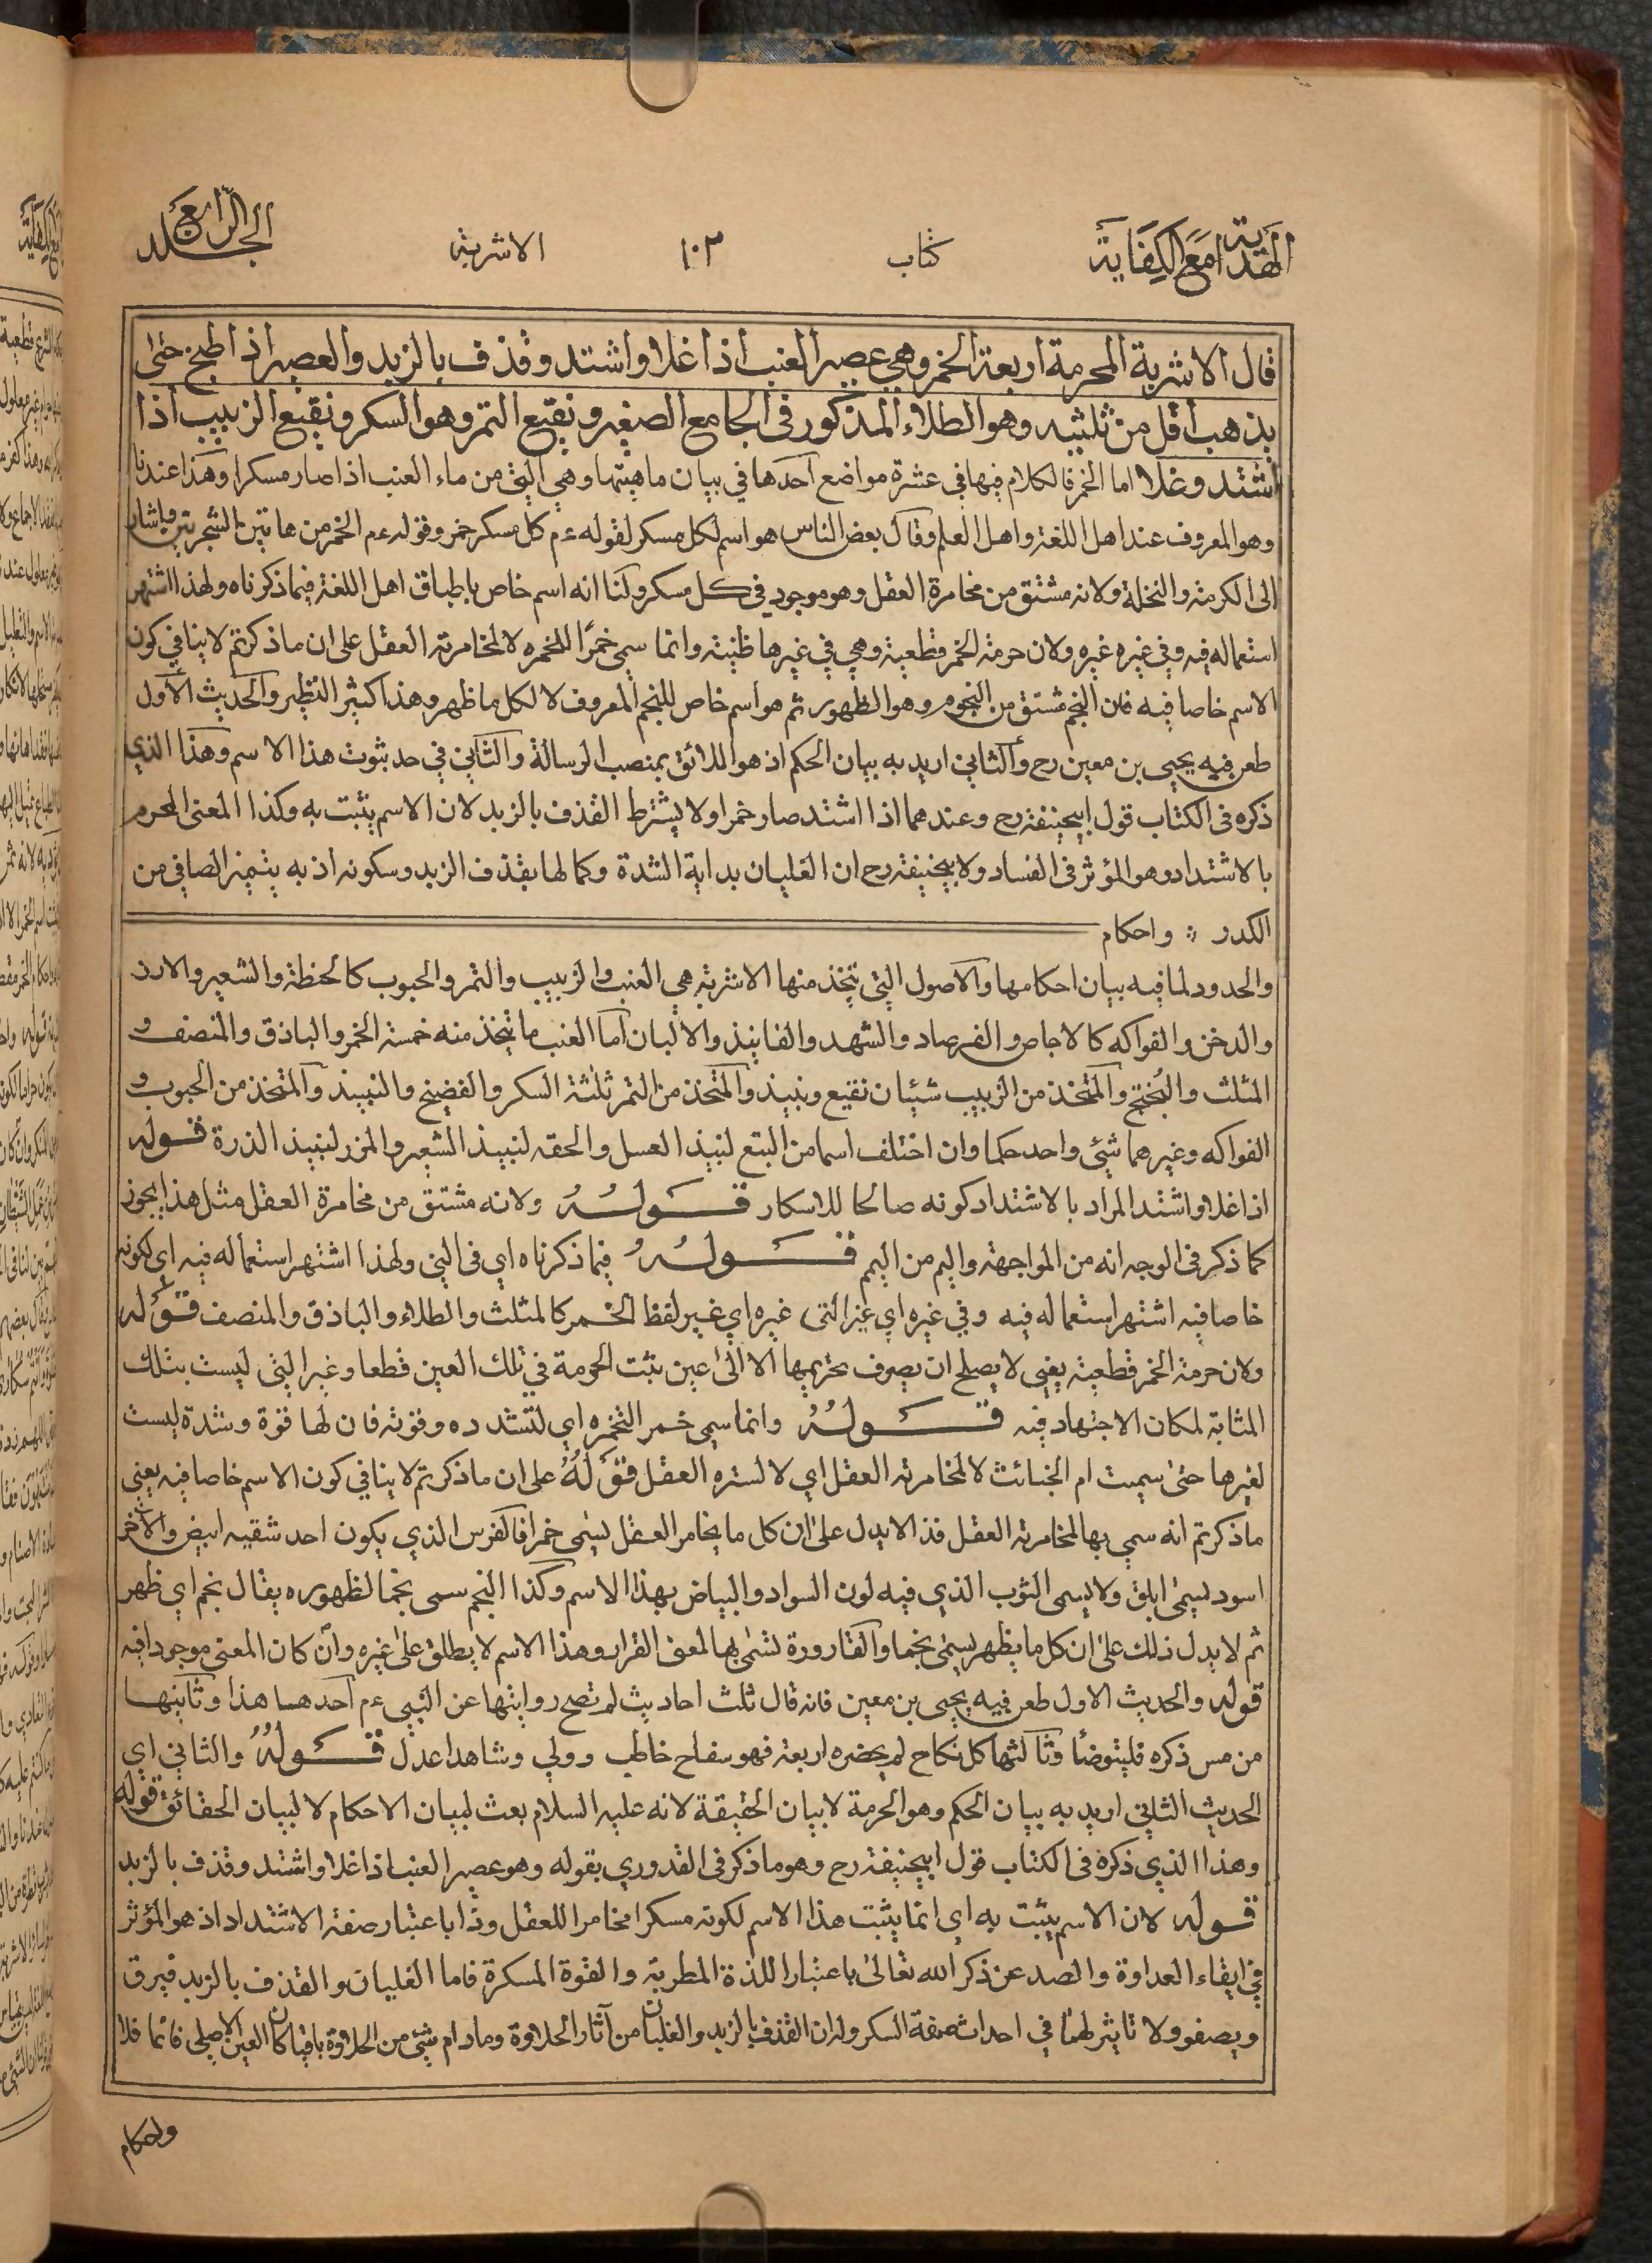 الهداية مع الكفاية
كتاب
١٠٣
الاشربة
الجلد الرابع
قال الاشربة المحرمة اربعة الخمر وهي عصير العنب اذا غلا واشتد وقذف بالزبد والعصير اذا طبخ حتى
يذهب اقل من ثلثيه وهو الطلاء المذكور في الجامع الصغير ونقيع التمر وهو السكر ونقيع الزبيب اذا
اشتد وغلا اما الخمر فالكلام فيها في عشرة مواضع احدها في بيان ماهيتها وهي الني من ماء العنب اذا صار مسكرا وهذا عندنا
وهو المعروف عند اهل اللغة واهل العلم وقال بعض الناس هو اسم لكل مسكر لقوله عم كل مسكر خمر وقوله عم الخمر من هاتين الشجرتين واشار
الى الكرمة والنخلة ولانه مشتق من مخامرة العقل وهو موجود في كل مسكر ولنا انه اسم خاص باطباق اهل اللغة فيما ذكرناه ولهذا اشتهر
استعماله فيه وفي غيره غيره ولان حرمة الخمر قطعية وهي في غيرها ظنية وانما سمي خمرًا لتخمره لا لمخامرته العقل على ان ما ذكرتم لا ينافي كون
الاسم خاصا فيه فان النجم مشتق من النجوم وهو الظهور ثم هو اسم خاص للنجم المعروف لا لكل ما ظهر وهذا كثير النظير والحديث الاول
طعن فيه يحيى بن معين رح والثاني اريد به بيان الحكم اذ هو اللائق بمنصب الرسالة والثاني في حد ثبوت هذا الاسم وهذا الذي
ذكره في الكتاب قول ابيحنيفة رح وعندهما اذا اشتد صار خمرا ولا يشترط القذف بالزبد لان الاسم يثبت به وكذا المعنى المحرم
بالاشتداد وهو المؤثر في الفساد ولابيحنيفة رح ان الغليان بداية الشدة وكمالها بقذف الزبد وسكونه اذ به يتميز الصافي من
الكدر ؞ واحكام
والحدود لما فيه بيان احكامها والاصول التي تتخذ منها الاشربة هي العنب والزبيب والتمر والحبوب كالحنظة والشعير والارز
والدخن والفواكه كالاجاص والفرصاد والشهد والفانيذ والالبان اما العنب ما يتخذ منه خمسة الخمر والباذق والمنصف و
المثلث والبُختج والمتخذ من الزبيب شيئان نقيع ونبيذ والمتخذ من التمر ثلثة السكر والفضيخ والنبيذ والمتخذ من الحبوب و
الفواكه وغيرهما شيئ واحد حكما وان اختلف اسما من البتع لنبيذ العسل والجعة لنبيذ الشعير والمزر لنبيذ الذرة قوله
اذا غلا واشتد المراد بالاشتداد كونه صالحا للاسكار قَولُهُ ولانه مشتق من مخامرة العقل مثل هذا يجوز
كما ذكر في الوجه انه من المواجهة واليم من اليم قَولُهُ فيما ذكرناه اي في الني ولهذا اشتهر استعماله فيه اي لكونه
خاصا فيه اشتهر استعماله فيه وفي غيره اي غير الني غيره اي غير لفظ الخمر كالمثلث والطلاء والباذق والمنصف قوله
ولان حرمة الخمر قطعية يعني لا يصلح ان يصرف تحريمها الا الى عين تثبت الحرمة في تلك العين قطعا وغير الني ليست بتلك
المثابة لمكان الاجتهاد فيه قَولُهُ وانما سمي خمر التخمره اي لتشدده وقوته فان لها قوة وشدة ليست
لغيرها حتى سميت ام الخبائث لا لمخامرته العقل اي لا لستره العقل قَولُهُ على ان ما ذكرتم لا ينافي كون الاسم خاصا فيه يعني
ما ذكرتم انه سمي بها لمخامرته العقل فذا لا يدل على ان كل ما يخامر العقل يسمى خمرا فالفرس الذي يكون احد شقيه ابيض والآخر
اسود يسمى ابلق ولا يسمى الثوب الذي فيه لون السواد والبياض بهذا الاسم وكذا النجم سمى نجما لظهوره يقال نجم اي ظهر
ثم لا يدل ذلك على ان كل ما يظهر يسمى نجما والقارورة تسمى بها لمعنى القرار وهذا الاسم لا يطلق على غيره وان كان المعنى موجودا فيه
قوله والحديث الاول طعن فيه يحيى بن معين فانه قال ثلث احاديث لم تصح روايتها عن النبي عم احدهما هذا وثانيها
من مس ذكره فليتوضأ وثالثها كل نكاح لم يحضره اربعة فهو سفاح خاطب وولي وشاهدا عدل قَولُهُ والثاني اي
الحديث الثاني اريد به بيان الحكم وهو الحرمة لا بيان الحقيقة لانه عليه السلام بعث لبيان الاحكام لا لبيان الحقائق قوله
وهذا الذي ذكره في الكتاب قول ابيحنيفة رح وهو ما ذكر في القدوري بقوله وهو عصير العنب اذا غلا واشتد وقذف بالزبد
قوله لان الاسم يثبت به اي انما يثبت هذا الاسم لكونه مسكرا مخامرا للعقل وذا باعتبار صفة الاشتداد اذ هو المؤثر
في ايقاء العداوة والصد عن ذكر الله تعالى باعتبار اللذة المطربة والقوة المسكرة فاما الغليان والقذف بالزبد فيرق
ويصفو ولا تأثير لهما في احداث صفة السكر وله ان القذف بالزبد والغليان من آثار الحلاوة وما دام شيئ من الحلاوة باقيا كان العين الاصلي قائما فلا
واحكام